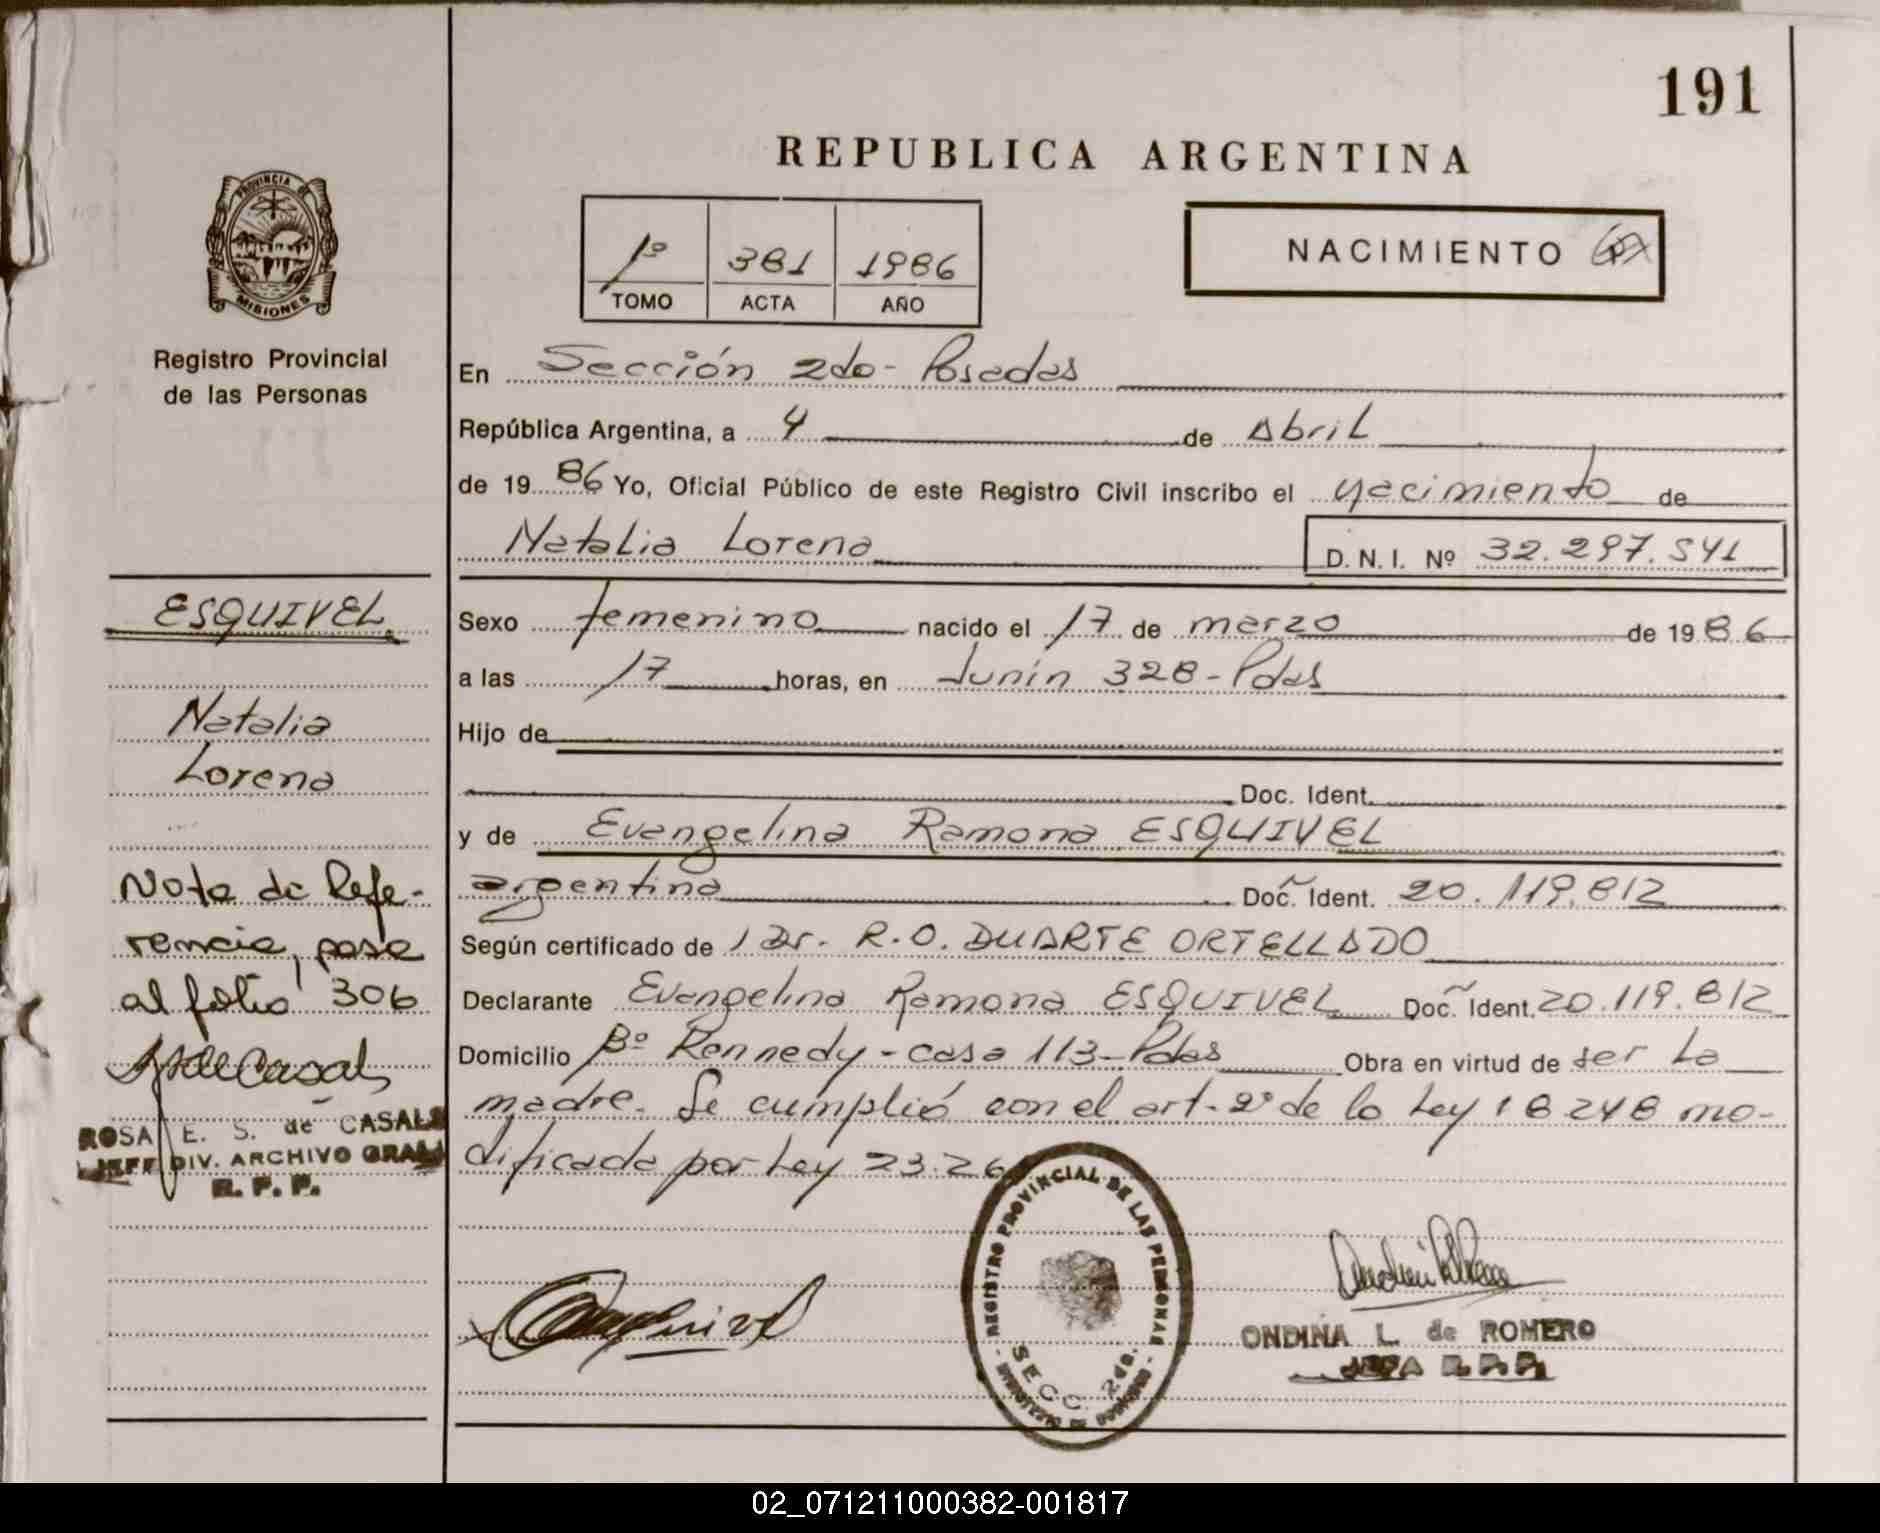 191
REPUBLICA ARGENTINA
PROVINCIA DE
MISIONES
1º 381 1986
TOMO ACTA AÑO
NACIMIENTO
Registro Provincial
de las Personas
En Sección 2do- Posadas
República Argentina, a 4 de Abril
de 19 86 Yo, Oficial Público de este Registro Civil inscribo el nacimiento de
Natalia Lorena D. N. I. Nº 32.297.541
ESQUIVEL
Natalia
Lorena
Nota de Refe-
rencia, pasa
al folio 306
ROSA E. S. de CASALS
JEFE DIV. ARCHIVO GRAL
R. P. P.
Sexo femenino nacido el 17 de marzo de 19 86
a las 17 horas, en Junín 328 - Pdas
Hijo de
Doc. Ident.
y de Evangelina Ramona ESQUIVEL
argentina Doc. Ident. 20.119.812
Según certificado de 1 Dr. R.O. DUARTE ORTELLADO
Declarante Evangelina Ramona ESQUIVEL Doc. Ident. 20.119.812
Domicilio Bº Kennedy - casa 113 - Pdas Obra en virtud de ser la
madre. Se cumplió con el art. 2º de la Ley 18248 mo-
dificada por Ley 23.26
REGISTRO PROVINCIAL DE LAS PERSONAS
SECC. 2da.
ONDINA L. de ROMERO
JEFA R.P.P.
02_071211000382-001817